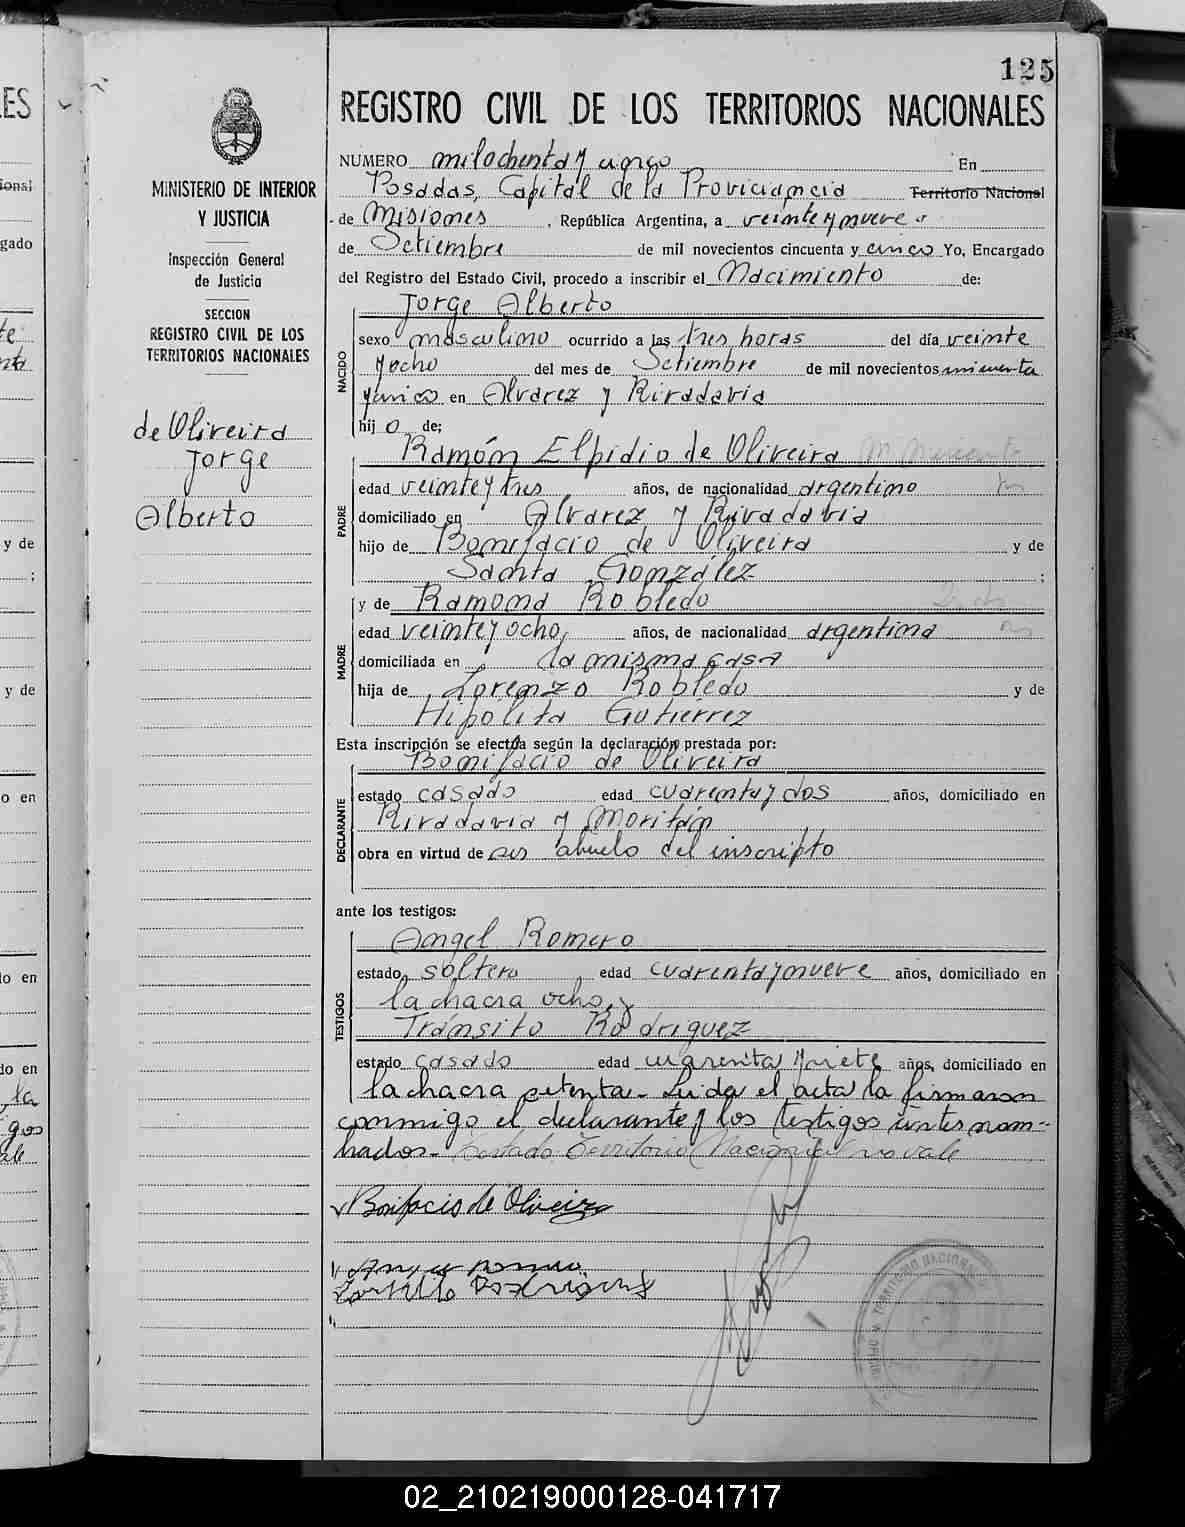 125
REGISTRO CIVIL DE LOS TERRITORIOS NACIONALES
MINISTERIO DE INTERIOR
Y JUSTICIA
Inspección General
de Justicia
SECCION
REGISTRO CIVIL DE LOS
TERRITORIOS NACIONALES
de Oliveira
Jorge
Alberto
NUMERO mil ochenta y cinco En
Posadas, Capital de la Territorio Nacional
de Misiones, República Argentina, a veinte y nueve
de Setiembre de mil novecientos cincuenta y cinco Yo, Encargado
del Registro del Estado Civil, procedo a inscribir el Nacimiento de:
Jorge Alberto
NACIDO
sexo masculino ocurrido a las tres horas del día veinte
y ocho del mes de Setiembre de mil novecientos
y cinco en Alvarez y Rivadavia
hijo de;
Ramón Elpidio de Oliveira
PADRE
edad veinte y tres años, de nacionalidad argentino
domiciliado en Alvarez y Rivadavia
hijo de Bonifacio de Oliveira y de
Santa González ;
y de Ramona Robledo
MADRE
edad veinte y ocho, años, de nacionalidad argentina
domiciliada en la misma casa
hija de Lorenzo Robledo y de
Hipólita Gutierrez
Esta inscripción se efectúa según la declaración prestada por:
Bonifacio de Oliveira
DECLARANTE
estado casado edad cuarenta y dos años, domiciliado en
Rivadavia y Moritán
obra en virtud de ser abuelo del inscripto
ante los testigos:
Angel Romero
TESTIGOS
estado soltero edad cuarenta y nueve años, domiciliado en
la chacra ocho, y
Tránsito Rodriguez
estado casado edad cuarenta y siete años, domiciliado en
la chacra setenta. Leida el acta la firmaron
conmigo el declarante y los testigos antes nom-
brados. Testado Territorio Nacional no vale
Bonifacio de Oliveira
02_210219000128-041717